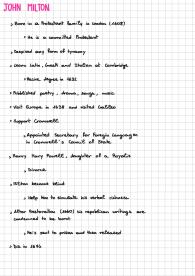 JOHN MILTON
› Born in a Protestant family in London (1608)
› He is a committed Protestant
› Despised any form of tyranny
› Learn Latin, Greek and Italian at Cambridge
› degree in 1632
› Published poetry, drama, songs, music
› Visit Europe in 1638 and visited Galileo
› Support Cromwell
› Appointed Secretary for Foreign Languages
in Cromwell's Council of State
› Marry Mary Powell, daughter of a Royalist
› Divorce
› Milton became blind
› Help him to stimulate his verbal richness
› After Restoration (1660) his republican writings are
condemned to be burnt
› He's sent to prison and then released
› Die in